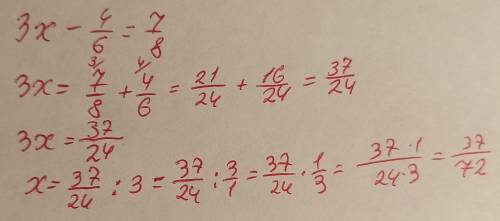 3x - 4/6 = 7/8
3x = 7/8 + 4/6 = 21/24 + 16/24 = 37/24
3x = 37/24
x = 37/24 : 3 = 37/24 : 3/1 = 37/24 · 1/3 = 37·1/24·3 = 37/72